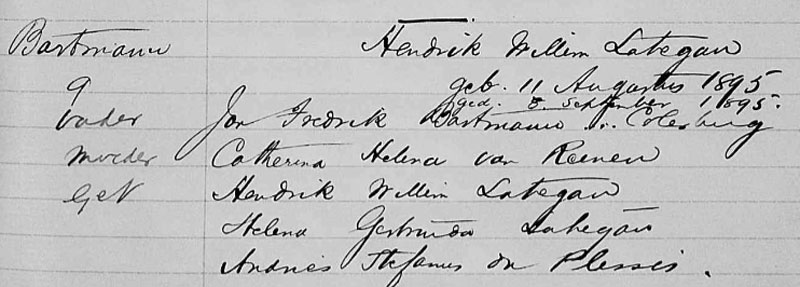 Bartmann Hendrik Willem Lategan
9 geb. 11 Augustus 1895
ged. 8 September 1895.
vader Jan Fredrik Bartmann Colesberg
moeder Catherina Helena van Reenen
Get Hendrik Willem Lategan
Helena Gertruida Lategan
Andries Stefanus du Plessis.